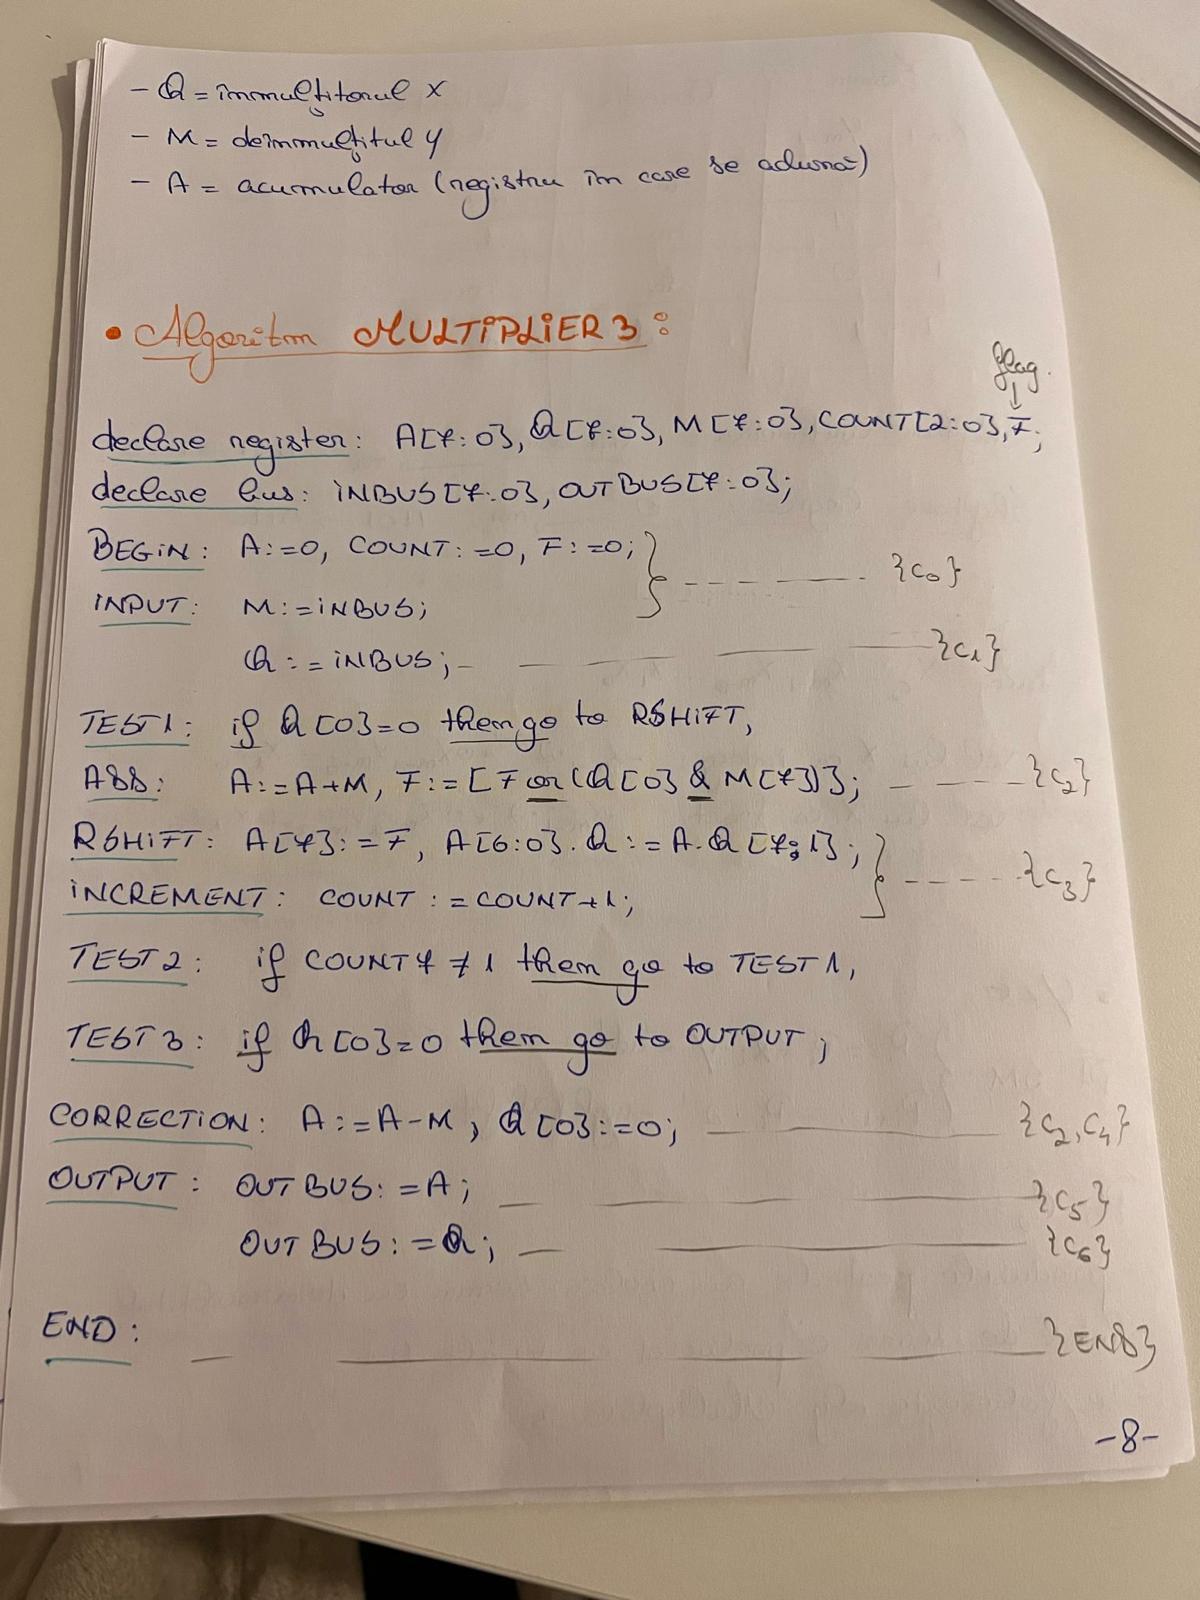 - Q = înmulțitorul X
- M = deînmulțitul Y
- A = acumulator (registru în care se adună)
• Algoritm MULTIPLIER 3 :
flag.
↓
declare register: A[7:0], Q[7:0], M[7:0], COUNT[2:0], F;
declare bus: INBUS[7:0], OUTBUS[7:0];
BEGIN: A:=0, COUNT:=0, F:=0; } - - - - {c0}
INPUT: M:=INBUS;
Q:=INBUS; - - - - {c1}
TEST1: if Q[0]=0 then go to RSHIFT,
ADD: A:=A+M, F:=[F or (Q[0] & M[7])]; - - - - {c2}
RSHIFT: A[7]:=F, A[6:0].Q:=A.Q[7:1]; } - - - - {c3}
INCREMENT: COUNT:=COUNT+1;
TEST2: if COUNT7≠1 then go to TEST1,
TEST3: if Q[0]=0 then go to OUTPUT;
CORRECTION: A:=A-M, Q[0]:=0; - - - - {c2,c4}
OUTPUT: OUTBUS:=A; - - - - {c5}
OUTBUS:=Q; - - - - {c6}
END: - - - - {END}
-8-